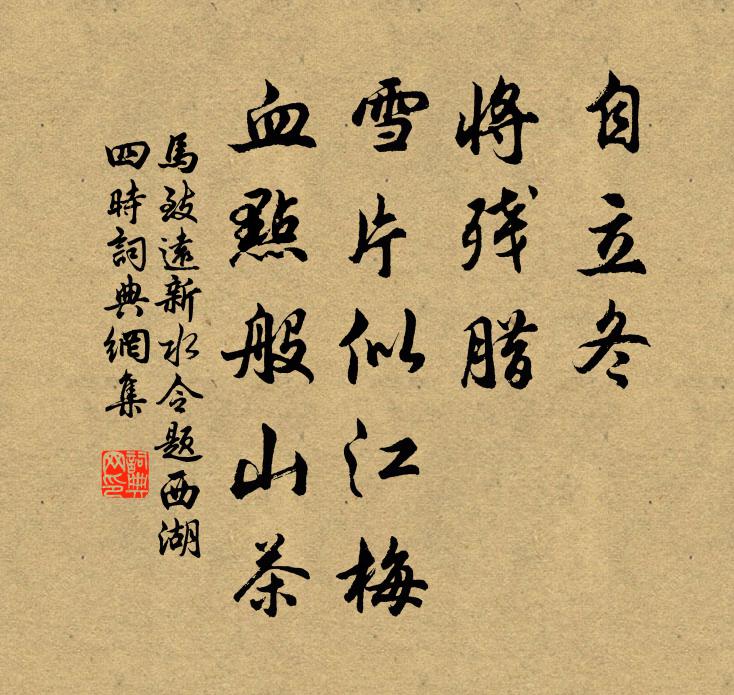 自立冬
将残腊
雪片似江梅
血點般山茶
馬致遠新水令題西湖
四時詞典網集
詞典网印